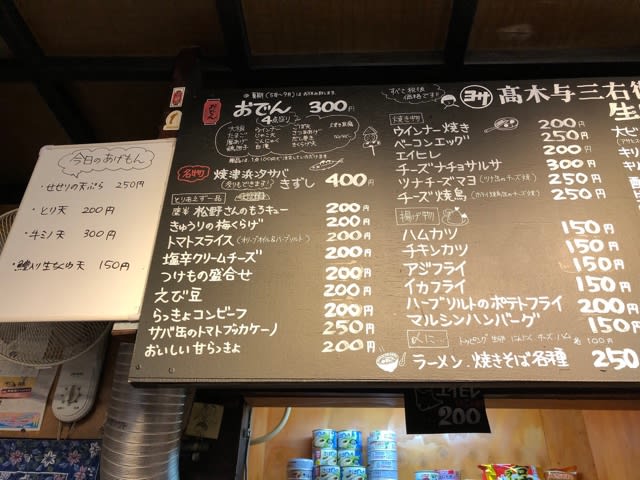 今日のあげもん
・せせりの天ぷら 250円
・とり天 200円
・牛ミノ天 300円
・鰹入り生なるゆ天 150円
おでん
おでん 300円
4点盛り
大根
たまご
ウインナー
こんにゃく
名物 焼津浜〆タサバ きずし 400円
とりあえず一品
松野さんのもろキュー 200円
きゅうりの梅くらげ 200円
トマトスライス 200円
塩辛クリームチーズ 200円
つけもの盛合せ 200円
えび豆 200円
らっきょコンビーフ 200円
サバ缶のトマトブッカケーノ 250円
おいしい甘らっきょ 200円
すべて税抜価格です!!
ヨサ 高木与三右衛
焼き物
ウインナー焼き 200円
ベーコンエッグ 250円
エイヒレ 200円
チーズナチョサルサ 300円
ツナチーズマヨ (ツナ缶のチーズ焼) 250円
チーズ焼鳥 250円
揚げ物
ハムカツ 150円
チキンカツ 150円
アジフライ 150円
イカフライ 150円
ハーブソルトのポテトフライ 200円
マルシンハンバーグ 150円
〆に… トッピング 生卵 にんにく チーズ ハム 各100円
ラーメン、焼きそば各種 250
エイヒレ
200